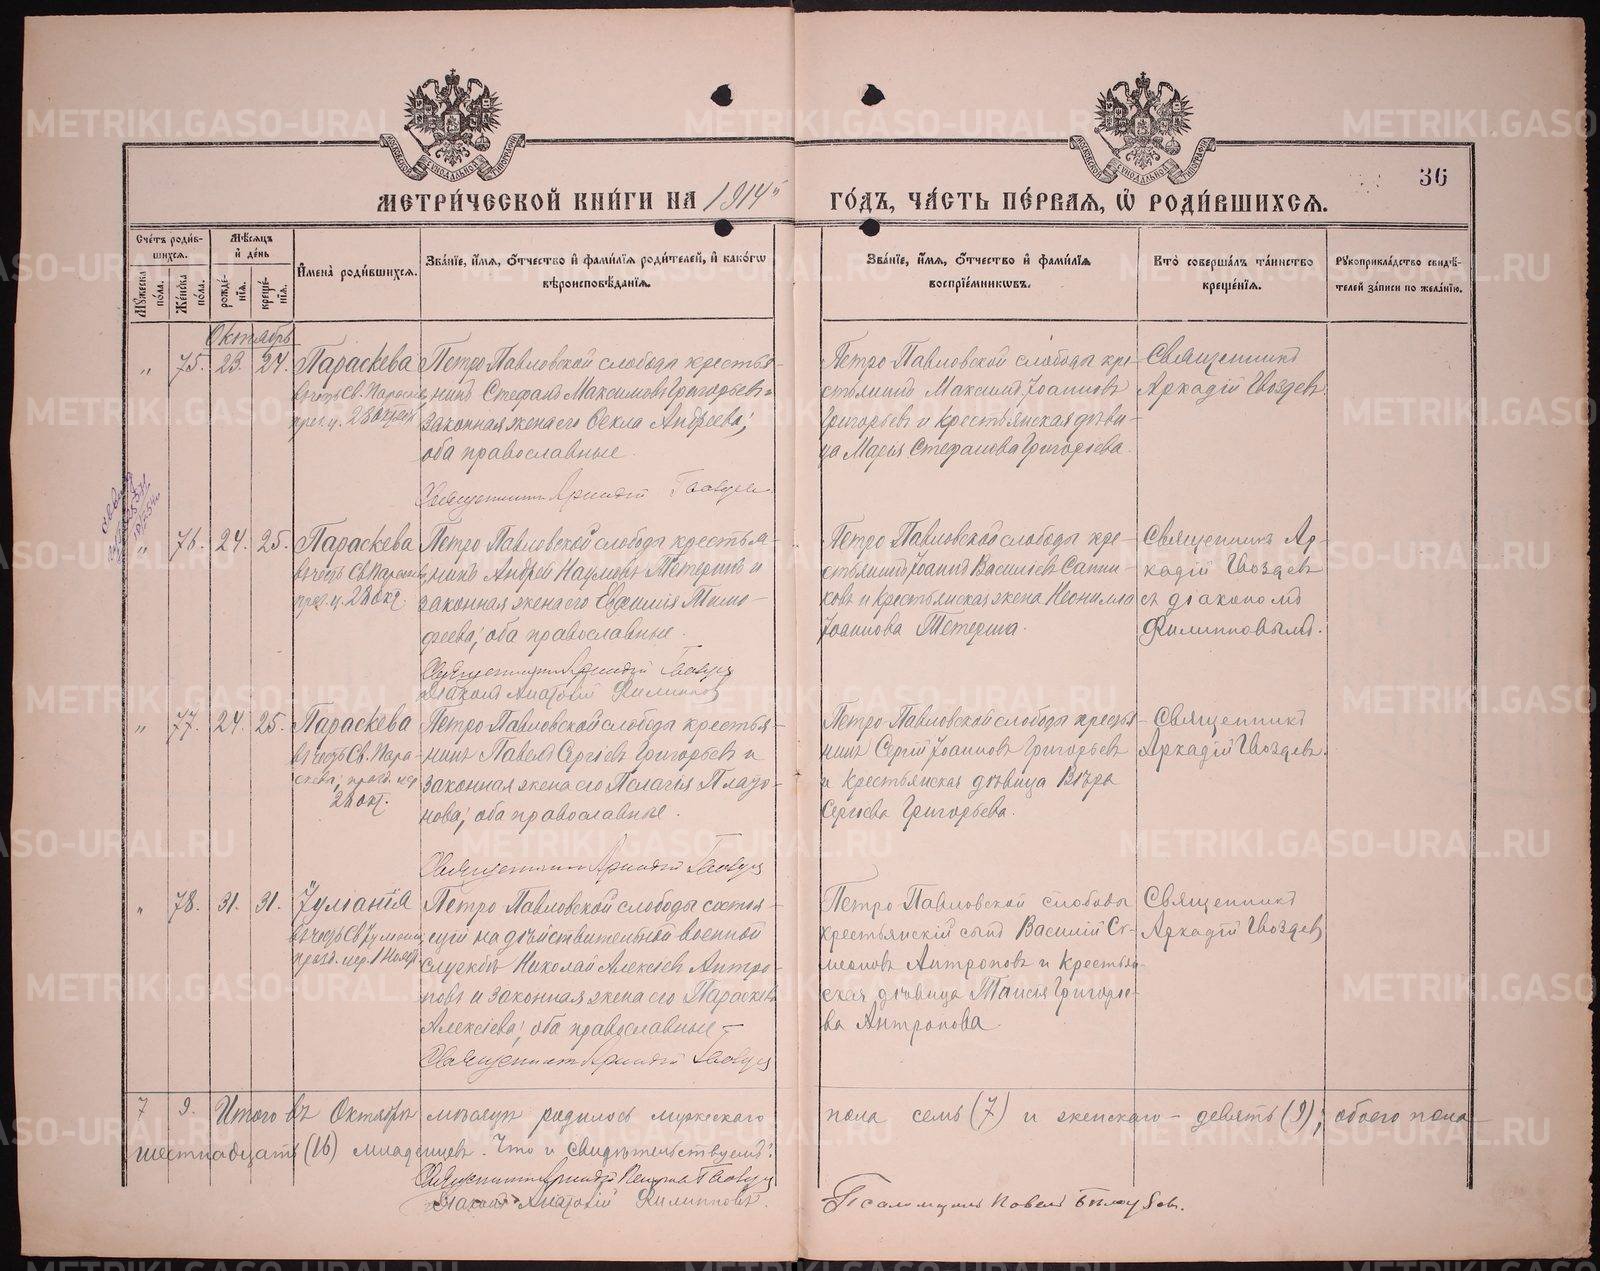 МЕТРИ́ЧЕСКОЙ КНИ́ГИ НА 1914й ГО́ДЪ, ЧА́СТЬ ПЕ́РВАЯ, Ѿ РОДИ́ВШИХСЯ.
36
Сче́тъ роди́вшихся.
Му́жеска по́ла.
Же́нска по́ла.
Мѣ́сяцъ и де́нь
рожде́нія.
креще́нія.
И҆мена̀ роди́вшихся.
Зва́ніе, и҆́мя, ѻ҆́тчество и҆ фами́лія роди́телей, и҆ како́гѡ
вѣроисповѣ́данія.
Зва́ніе, и҆́мя, ѻ҆́тчество и҆ фами́лія
воспріе́мниковъ.
Кто̀ соверша́лъ та́инство
креще́нія.
Рꙋкоприкла́дство свидѣ́-
телей за́писи по жела́нію.
Октябрь
" 75. 23. 24.
Параскева
въ честь Св. Параске
празд. 28 октяб.
Петро Павловской слободы крестья-
нинъ Стефанъ Максимовъ Григорьевъ и
законная жена его Ѳекла Андреева;
оба православные.
Священникъ Аркадій Гвоздевъ
Петро Павловской слободы кре-
стьянинъ Максимъ Іоанновъ
Григорьевъ и крестьянская дѣви-
ца Марія Стефанова Григорьева.
Священникъ
Аркадій Гвоздевъ.
" 76. 24. 25.
Параскева
въ честь Св. Параскев
празд. 28 окт.
Петро Павловской слободы крестья-
нинъ Андрей Наумовъ Тетеринъ и
законная жена его Евфимія Тимо-
феева; оба православные.
Священникъ Аркадій Гвоздевъ
Діаконъ Анатолій Филипповъ
Петро Павловской слободы кре-
стьянинъ Іоаннъ Васильевъ Санни-
ковъ и крестьянская жена Неонилла
Іоаннова Тетерина.
Священникъ Ар-
кадій Гвоздевъ
съ діакономъ
Филипповымъ.
" 77. 24. 25.
Параскева
въ честь Св. Пара-
скевы; празд. пер.
28 окт.
Петро Павловской слободы крестья-
нинъ Павелъ Сергіевъ Григорьевъ и
законная жена его Пелагія Плато-
нова; оба православные.
Священникъ Аркадій Гвоздевъ
Петро Павловской слободы крестья-
нинъ Сергій Іоанновъ Григорьевъ
и крестьянская дѣвица Вѣра
Сергіева Григорьева.
Священникъ
Аркадій Гвоздевъ.
" 78. 31. 31.
Іуліанія
въ честь Св. Іуліаніи
празд. пер. 1 Нояб.
Петро Павловской слободы состоя-
щій на дѣйствительной военной
службѣ Николай Алексіевъ Антро-
повъ и законная жена его Параскева
Алексіева; оба православные.
Священникъ Аркадій Гвоздевъ
Петро Павловской слободы
крестьянскій сынъ Василій Си-
меоновъ Антроповъ и крестьян-
ская дѣвица Таисія Григорье-
ва Антропова
Священникъ
Аркадій Гвоздевъ
7 9. Итого въ Октябрѣ мѣсяцѣ родилось мужескаго пола семь (7) и женскаго - девять (9); обоего пола
шестнадцать (16) младенцевъ. Что и свидѣтельствуемъ:
Священникъ Аркадій Петровъ Гвоздевъ
Діаконъ Анатолій Филипповъ.
Псаломщикъ Павелъ
METRIKI.GASO-URAL.RU